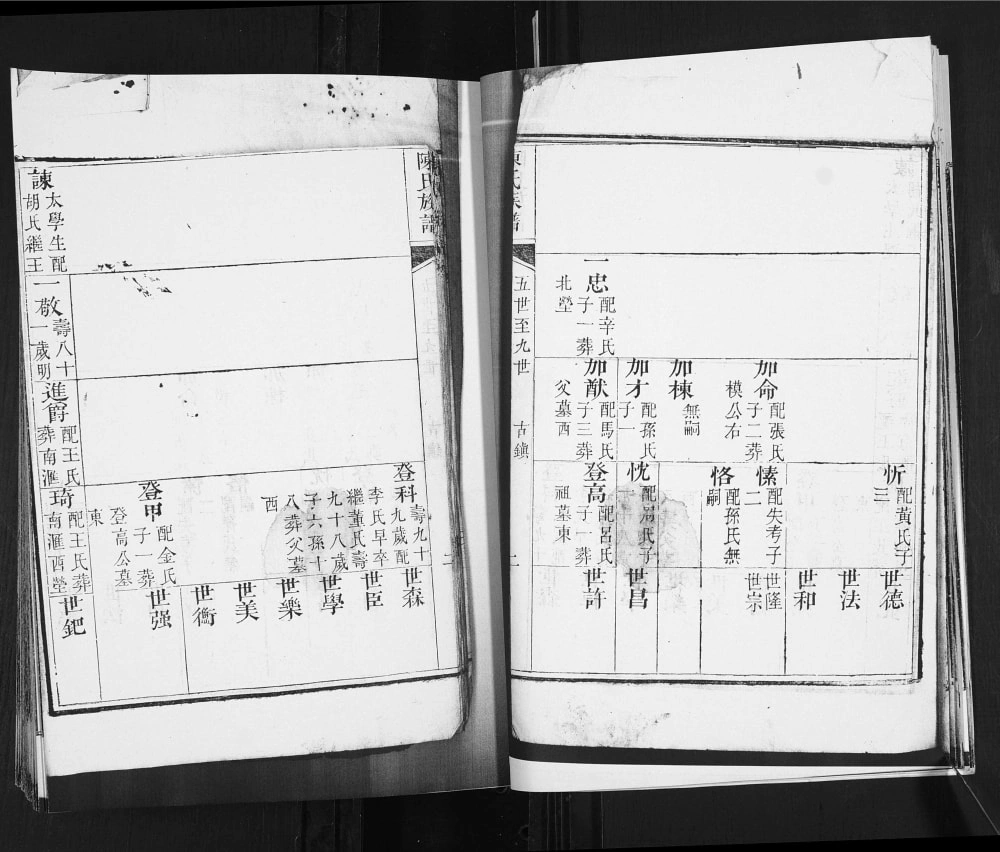 忻 配黃氏子三
世德
世法
世和
加命 配張氏子二葬模公右
愫 配失考子二
世隆
世宗
恪 配孫氏無嗣
加棟 無嗣
加才 配孫氏子一
忱 配呂氏子
世昌
一忠 配辛氏子一葬北塋
加猷 配馬氏子三葬父墓西
登高 配呂氏子一葬祖墓東
世許
陳氏族譜
五世至九世
古鎮
陳氏族譜
登科 壽九十九歲配李氏早卒繼董氏壽九十八歲子六孫十八葬父墓西
世森
世臣
世學
世樂
世美
世衡
登甲 配金氏子一葬登高公墓東
世强
諫 太學生配胡氏繼王
一敬 壽八十一歲明
進爵 配王氏葬南滙
琦 配王氏葬南滙西塋
世鈀